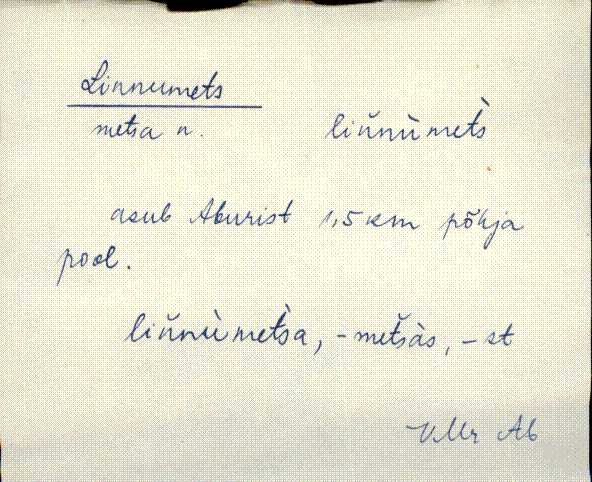 Linnumets
metsa n. liǹnùmet̀s
asub Aburist 1,5 km põhja
pool.
liǹnùmet̀sa, -met̀sàs, -st
VMr Ab